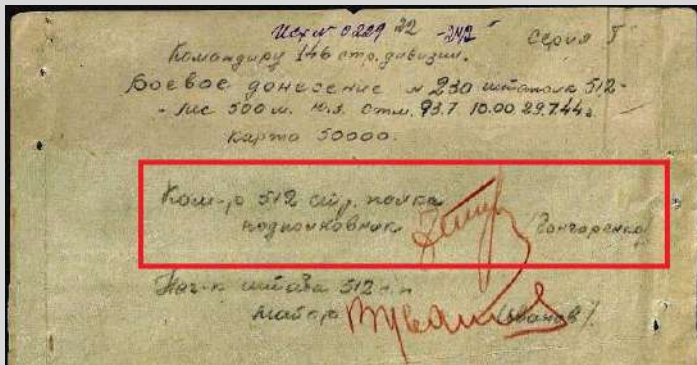 Исх № 0229 22 -242 Серия Г
Командиру 146 стр. дивизии.
Боевое донесение № 230 штаполк 512 -
- лес 500 м. ю.з. отм. 93.7 10.00 29.7.44 г
карта 50000.
Ком-р 512 стр. полка
подполковник /Гончаренко/
Нач-к штаба 512 с.п
майор Иванов /Иванов/.